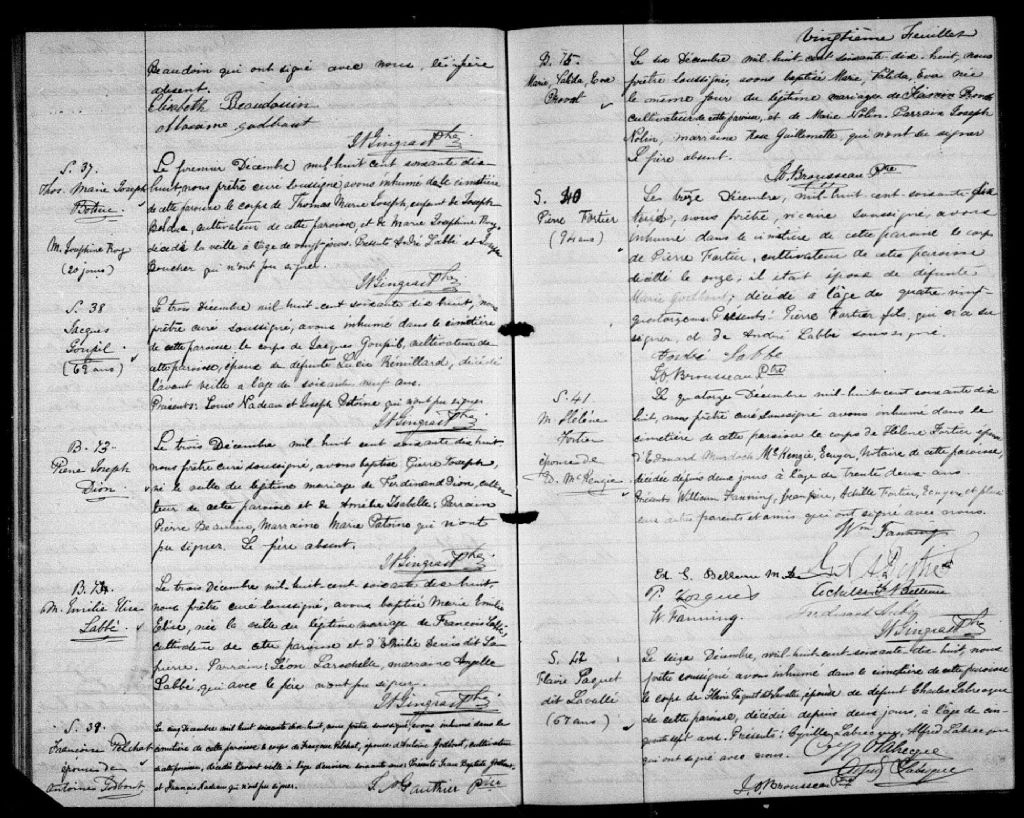 Beaudoin qui ont signé avec nous le père
absent.
Elizabeth Beaudoin
Godbout
N Gingras Ptre
S. 37.
Thos. Marie Joseph
Bolduc
M. Josephine Roy
(20 jours)
Le premier Décembre mil huit cent soixante dix
huit, nous prêtre curé soussigné, avons inhumé dans le cimetière
de cette paroisse le corps de Thomas Marie Joseph, enfant de Joseph
Bolduc, cultivateur de cette paroisse et de Marie Josephine Roy,
décédé la veille à l'age de vingt jours. Présents André Labbé et
Boucher qui n'ont pu signer.
N Gingras Ptre
S. 38
Jacques
Goupil
(69 ans)
Le trois Décembre mil-huit-cent soixante dix huit, nous
prêtre curé soussigné, avons inhumé dans le cimetière
de cette paroisse, le corps de Jacques Goupil, cultivateur de
cette paroisse, époux de défunte Lucie Rémillard, décédé
l'avant veille a l'age de soixante neuf ans.
Présents: Louis Nadeau et Joseph Patoine qui n'ont pu signer
N Gingras Ptre
B. 73
Pierre Joseph
Dion
Le trois Décembre, mil huit cent soixante dix huit
nous prêtre curé soussigné, avons baptisé Pierre Joseph,
né la veille du légitime mariage de Ferdinand Dion, cultiva-
teur de cette paroisse et de Amélie Isabelle, Parrain
Pierre Beaulieu, Marraine Marie Patoine qui n'ont
pu signer. Le père absent.
N Gingras Ptre
B. 74
M. Emilie Elise
Labbé
Le trois Décembre mil-huit-cent soixante dix huit,
nous prêtre curé soussigné, avons baptisé Marie Emilie
Elise, née la veille du légitime mariage de François Labbé,
cultivateur de cette paroisse et d'Emilie Denis dit La
pierre. Parrain: Léon Larochelle, marraine
Labbé, qui avec le père n'ont pu signer.
N Gingras Ptre
S. 39.
Françoise Pelchat
épouse de
Antoine Godbout
Le cinq Décembre mil huit soixante dix huit, nous prêtre soussigné, avons inhumé dans le
cimetière de cette paroisse le corps de Françoise Pelchat, épouse d'Antoine Godbout, cultivateur
de cette paroisse, décédée l'avant veille à l'age d'environ soixante ans. Présents Jean Baptiste
et François Nadeau qui n'ont pu signer.
Gauthier Ptre
Vingtième Feuillet
B. 75.
Marie, Valida, Eva
Provost
Le six Décembre, mil huit cent soixante-dix-huit, nous
prêtre soussigné, avons baptisé Marie, Valida, Eva née
le même jour du légitime mariage de
cultivateur de cette paroisse, et de Marie Nolin. Parrain Joseph
Nolin, marraine Rose Guillemette, qui n'ont su signer
Le père absent.
J.O. Brousseau Ptre
S. 40
Pierre Fortier
(94 ans)
Le treize Décembre, mil huit cent soixante dix
huit, nous prêtre, vicaire soussigné, avons
inhumé dans le cimetière de cette paroisse le corps
de Pierre Fortier, cultivateur de cette paroisse
décédé le onze; il était époux de défunte
Marie Godbout; décédé à l'âge de quatre vingt
quatorze ans. Présents: Pierre Fortier fils, qui n'a su
signer, et de André Labbé soussigné.
André Labbé
J.O. Brousseau Ptre
S. 41.
M. Hélène
Fortier
épouse de
E. McKenzie
Le quatorze Décembre mil huit cent soixante dix
huit, nous prêtre curé soussigné avons inhumé dans le
cimetière de cette paroisse le corps de Hélène Fortier épouse
d'Edouard Murdoch McKenzie, Ecuyer, Notaire de cette paroisse,
décédée depuis deux jours à l'age de trente deux ans.
Présents William Fanning, Achille Fortier, Ecuyers et plusi-
eurs autres parents et amis qui ont signé avec nous.
Wm Fanning
Ed. G. Belleau M.D.
W. Fanning.
N Gingras Ptre
S. 42
Flavie Paquet
dit Lavallé
(67 ans)
Le seize Décembre, mil-huit-cent soixante-dix-huit, nous
prêtre soussigné avons inhumé dans le cimetière de cette paroisse
le corps de Flavie Paquet dit Lavallé, épouse de défunt Charles Labrecque
de cette paroisse, décédée depuis deux jours, à l'âge de
sept ans. Présents: Cyrille Labrecque, Alfred Labrecque
qui ont signé avec nous.
Labrecque
Alfred Labrecque
J.O. Brousseau Ptre